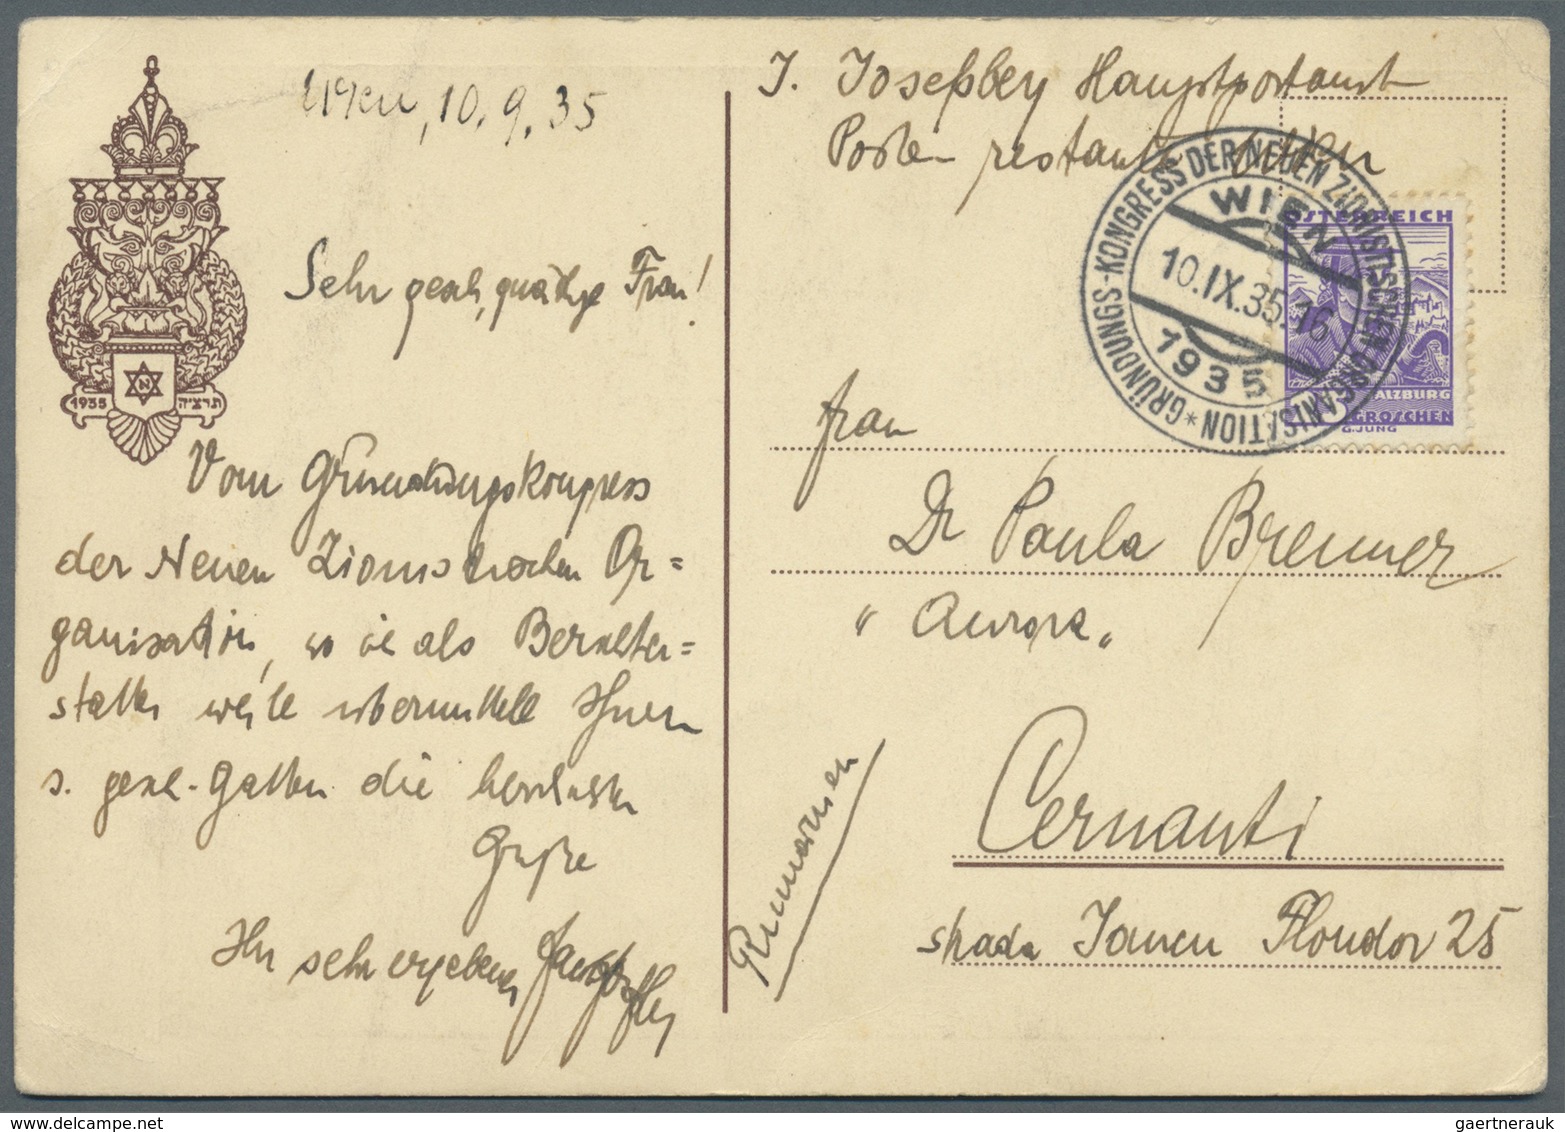 Wien, 10. 9. 35
Sehr geeh., gnädige Frau!
1935 תרצ״ה
N
Vom Gründungskongress
der Neuen Zionistischen Or=
ganisation, wo ich als Berichter=
statter weile übermittelt Ihnen
s. geehr. Gatten die herzlichsten
Grüße
Ihr sehr ergebener
J. Josephbey Hauptpostamt
Poste restante Wien
GRÜNDUNGS-KONGRESS DER NEUEN ZIONISTISCHEN ORGANISATION *
WIEN
10.IX.35.16
1935
ÖSTERREICH
SALZBURG
GROSCHEN
G.JUNG
Frau
Dr Paula Brenner
"Aurora"
Cernauti
strada Iancu Flondor 25
Rumänien
gaertnerauk